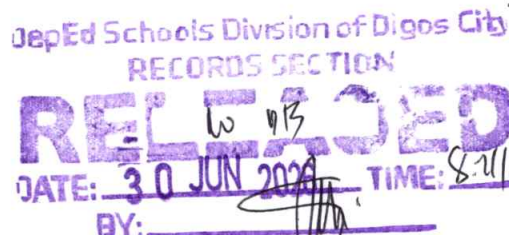 DepEd Schools Division of Digos City
RECORDS SECTION
RELEASED
DATE: 30 JUN TIME:
BY: